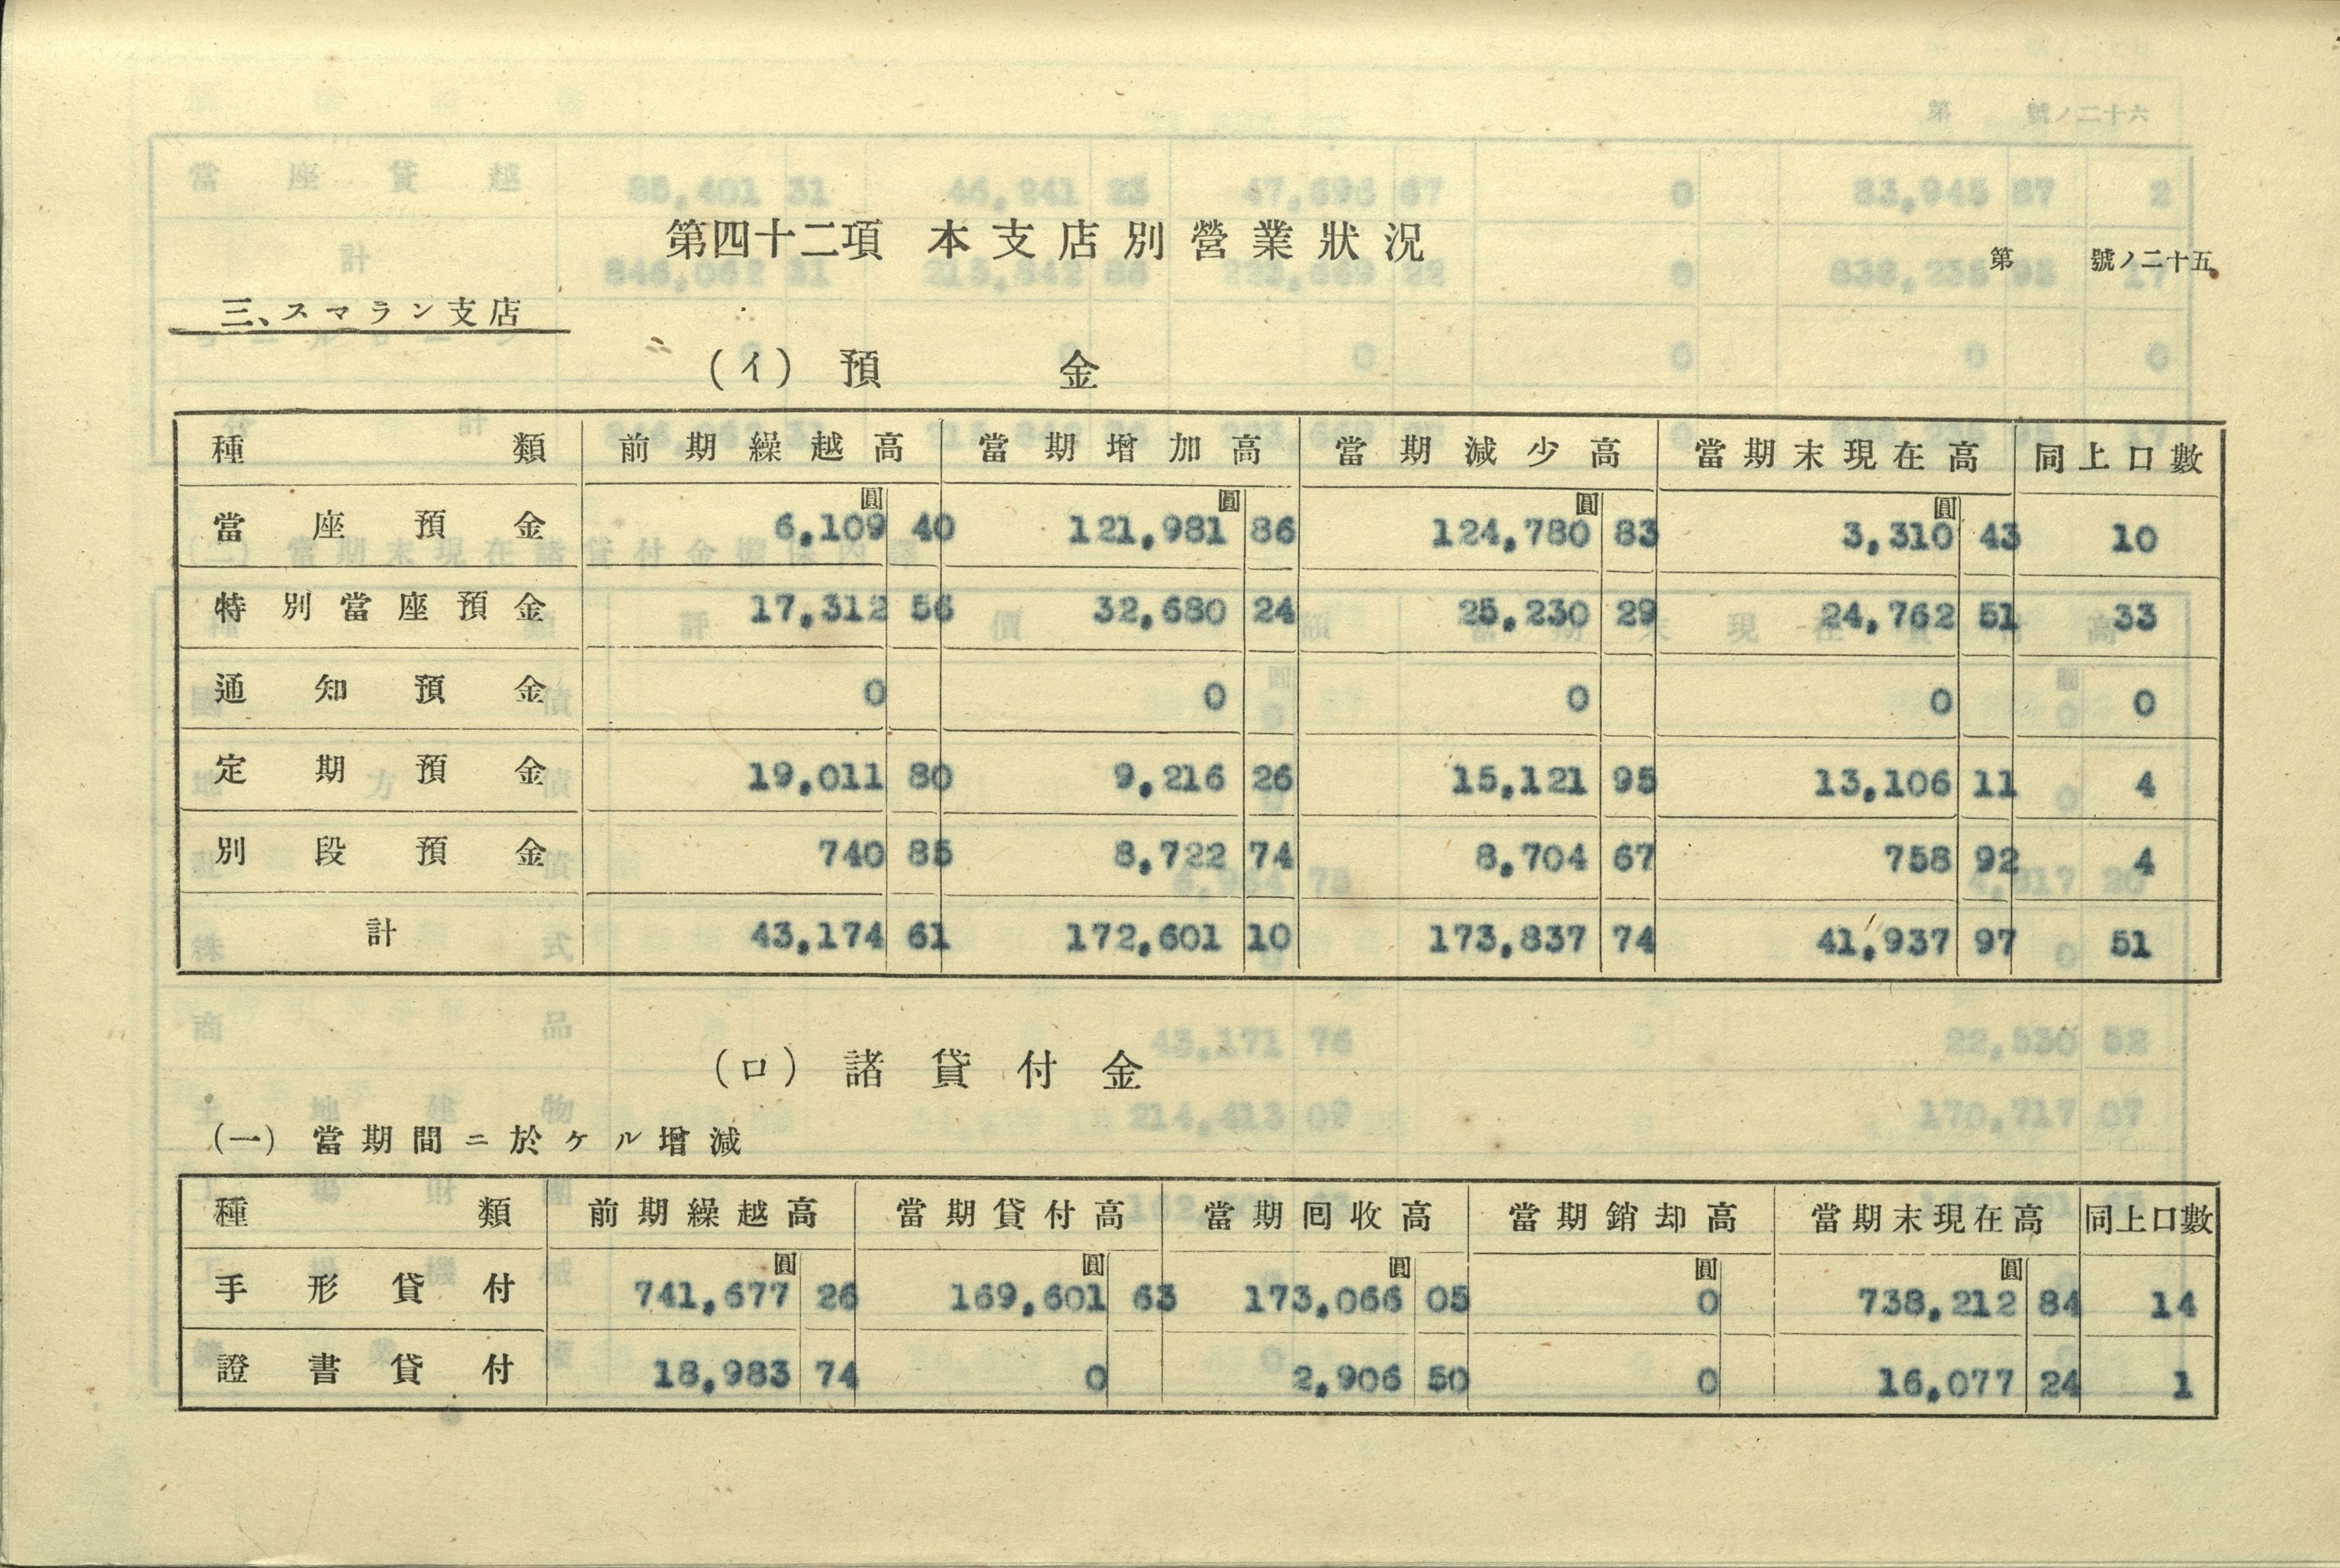 第四十二項 本支店別營業狀況
第 號ノ二十五
三、スマラン支店
(イ) 預金
種類 前期繰越高 當期增加高 當期減少高 當期末現在高 同上口數
圓 圓 圓 圓
當座預金 6,109 40 121,981 86 124,780 83 3,310 43 10
特別當座預金 17,312 56 32,680 24 25,230 29 24,762 51 33
通知預金 0 0 0 0 0
定期預金 19,011 80 9,216 26 15,121 95 13,106 11 4
別段預金 740 85 8,722 74 8,704 67 758 92 4
計 43,174 61 172,601 10 173,837 74 41,937 97 51
(ロ) 諸貸付金
(一) 當期間ニ於ケル增減
種類 前期繰越高 當期貸付高 當期回收高 當期銷却高 當期末現在高 同上口數
圓 圓 圓 圓 圓
手形貸付 741,677 26 169,601 63 173,066 05 0 738,212 84 14
證書貸付 18,983 74 0 2,906 50 0 16,077 24 1